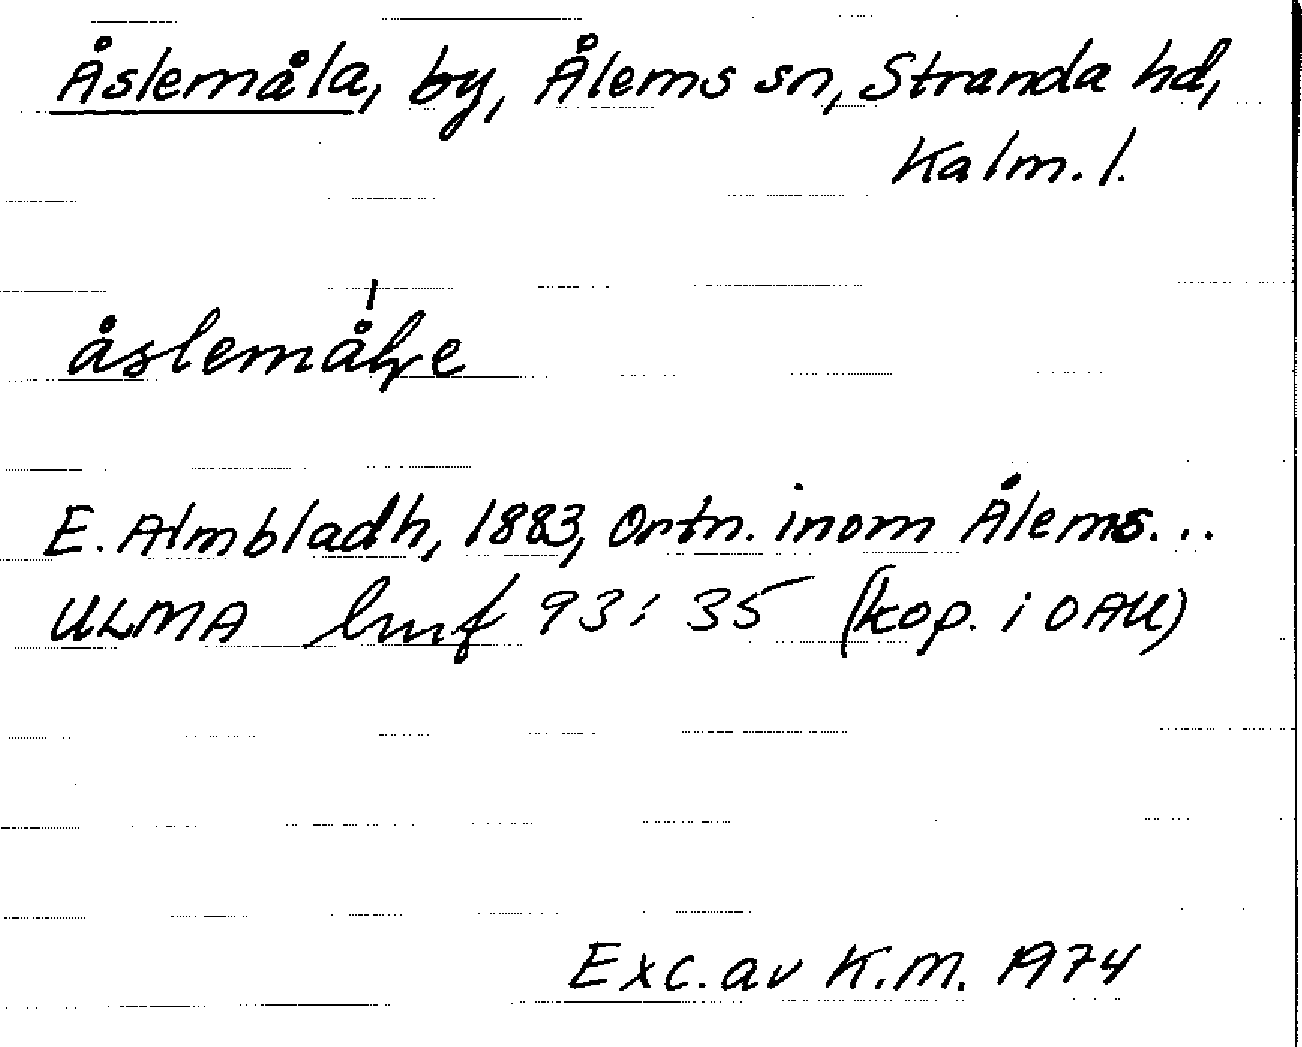 Åslemåla, by, Ålems sn, Stranda hd,
Kalm. l.
åslemåɭe
E. Almbladh, 1883, Ortn. inom Ålems...
ULMA lmf 93: 35 (kop. i OAU)
Exc. av K.M. 1974